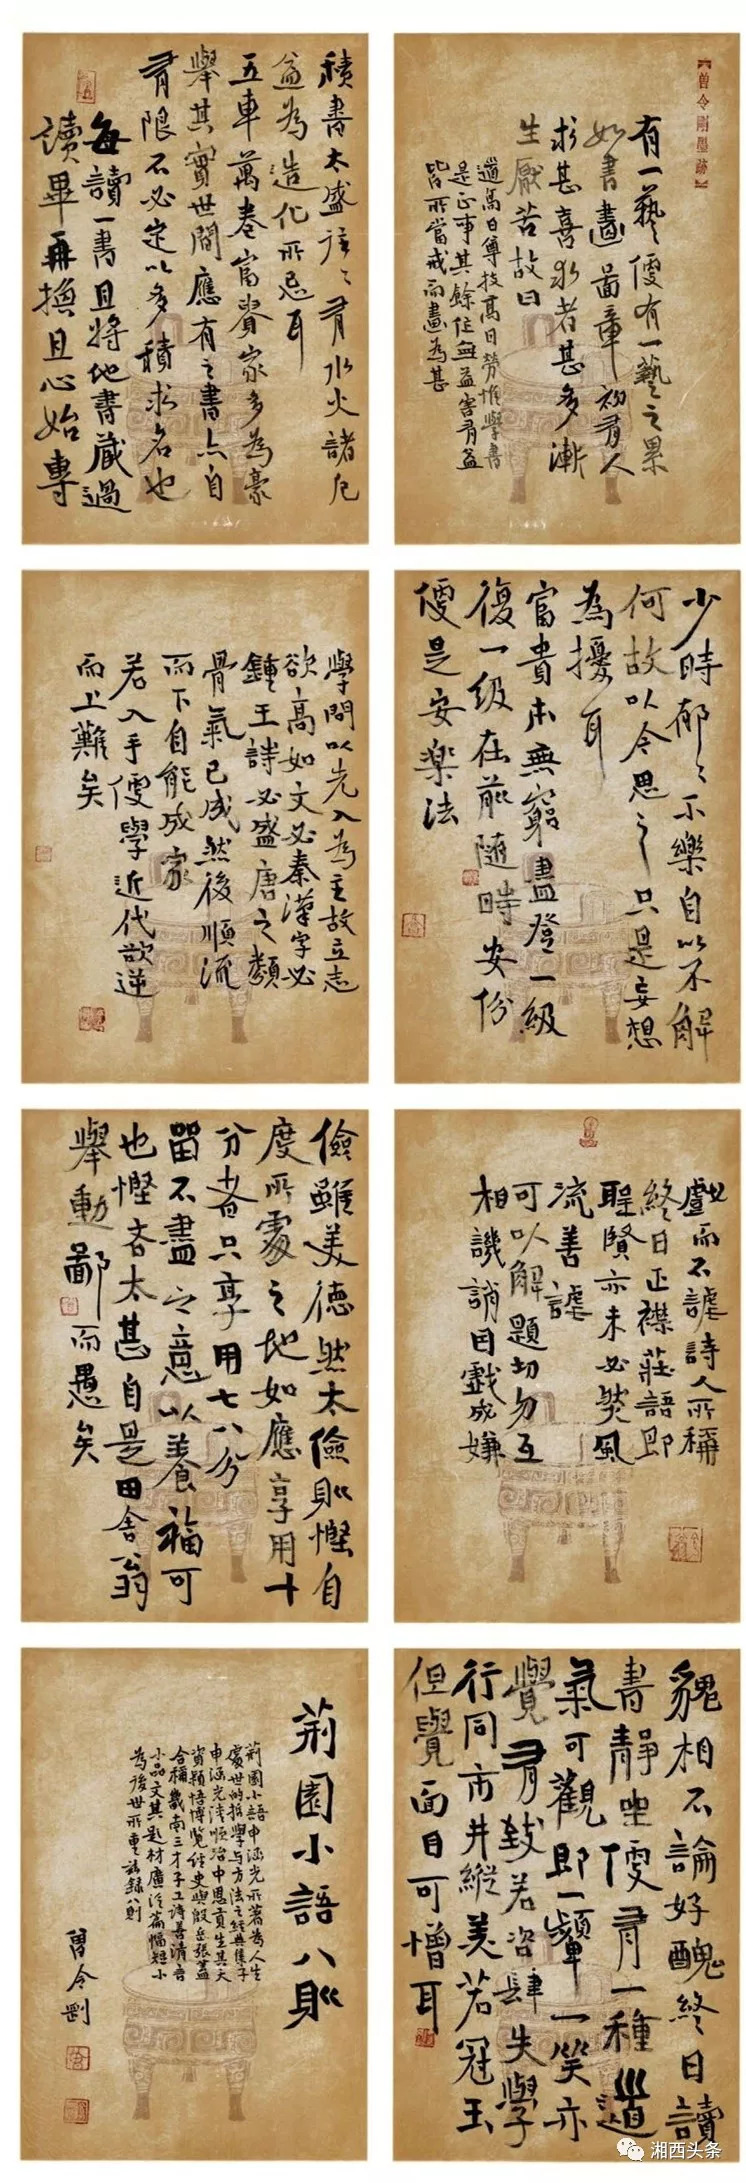 【曾令剛墨跡】
有一藝便有一藝之累
如書畫圖章初有人
求甚喜求者甚多漸
生厭苦故曰
道高日尊技高日勞惟學書
是正事其餘往無益害有益
皆所當戒而畫為甚
積書太盛往々有水火諸厄
蓋為造化所忌耳
五車萬卷富貴家多為豪
舉其實世間應有之書亦自
有限不必定以多積求名也
每讀一書且將他書藏過
讀畢再換且心始專
少時郁々不樂自以不解
何故以今思之只是妄想
為擾耳
富貴本無窮盡登一級
復一級在前隨時安份
便是安樂法
學問以先入為主故立志
欲高如文必秦漢字必
鍾王詩必盛唐之類
骨氣已成然後順流
而下自能成家
若入手便學近代欲逆
而上難矣
戲而不謔詩人所稱
終日正襟莊語即
聖賢亦未必然風
流善謔
可以解題切勿互
相譏誚因戲成嫌
儉雖美德然太儉則慳自
度所處之地如應享用十
分者只享用七八分
留不盡之意以養福可
也慳吝太甚自是田舍翁
舉動鄙而愚矣
貌相不論好醜終日讀
書靜坐便有一種道
氣可觀即一顰一笑亦
覺有致若恣肆失學
行同市井縱美若冠玉
但覺面目可憎耳
荊園小語八則
荊園小語申涵光所著為人生
處世的哲學与方法之經典集子
申涵光清順治中恩貢生其天
資穎悟博覽經史與殷岳張蓋
合稱畿南三才子工詩善清言
小品文其題材廣泛篇幅短小
為後世所重茲錄八則
曾令剛
湘西头条